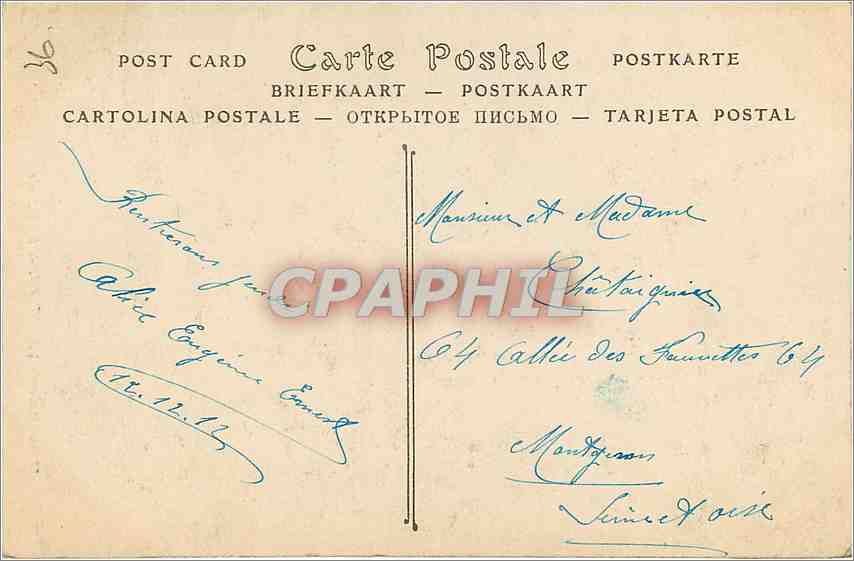 36
POST CARD Carte Postale POSTKARTE
BRIEFKAART — POSTKAART
CARTOLINA POSTALE — ОТКРЫТОЕ ПИСЬМО — TARJETA POSTAL
Rentrerons jeudi
Alice Eugène Ernest
12.12.12
Monsieur et Madame
Châtaignier
64 Allée des Fauvettes 64
Montgeron
Seine et Oise
CPAPHIL